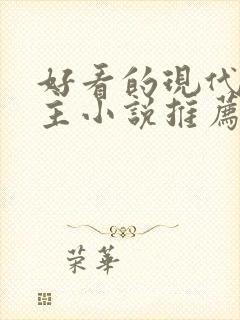 好看的現代
主小說推薦
荣華